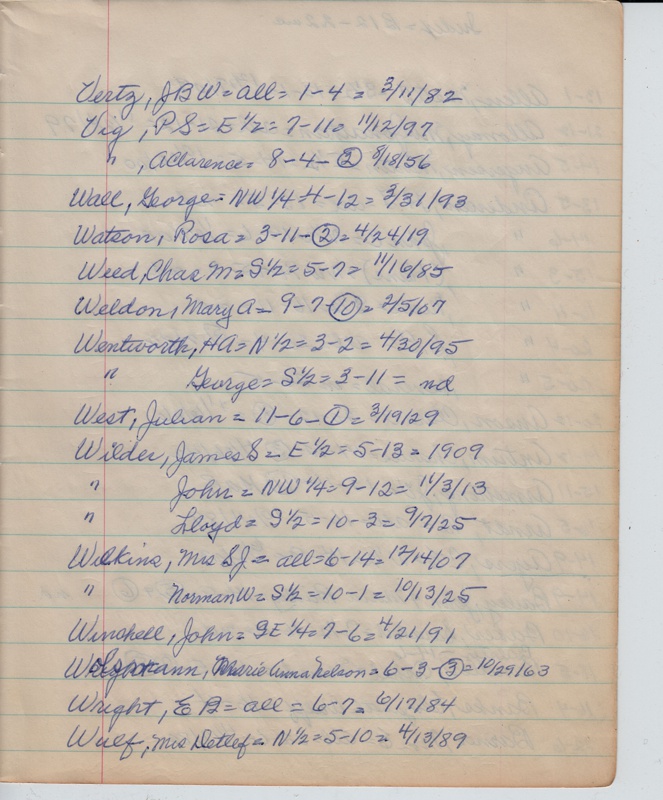 Vertz, JBW = all = 1-4 = 3/11/82
Vig, PS = E 1/2 = 7-11 = 11/12/97
" , A Clarence = 8-4-② 8/18/56
Wall, George = NW 1/4 = 4-12 = 3/31/93
Watson, Rosa = 3-11-② = 4/24/19
Weed, Chas M = S 1/2 = 5-7 = 11/16/85
Weldon, Mary A = 9-7-⑩ = 2/5/07
Wentworth, HA = N 1/2 = 3-2 = 4/30/95
" George = S 1/2 = 3-11 = nd
West, Julian = 11-6-① = 3/19/29
Wilder, James S = E 1/2 = 5-13 = 1909
" John = NW 1/4 = 9-12 = 11/3/13
" Lloyd = S 1/2 = 10-3 = 9/7/25
Wilkins, Mrs SJ = all = 6-14 = 12/14/07
" Norman W = S 1/2 = 10-1 = 10/13/25
Winchell, John = SE 1/4 = 7-6 = 4/21/91
Marie Anna Nelson = 6-3-③ = 10/29/63
Wright, EB = all = 6-7 = 6/17/84
Wulf, Mrs Detlef = N 1/2 = 5-10 = 4/13/89